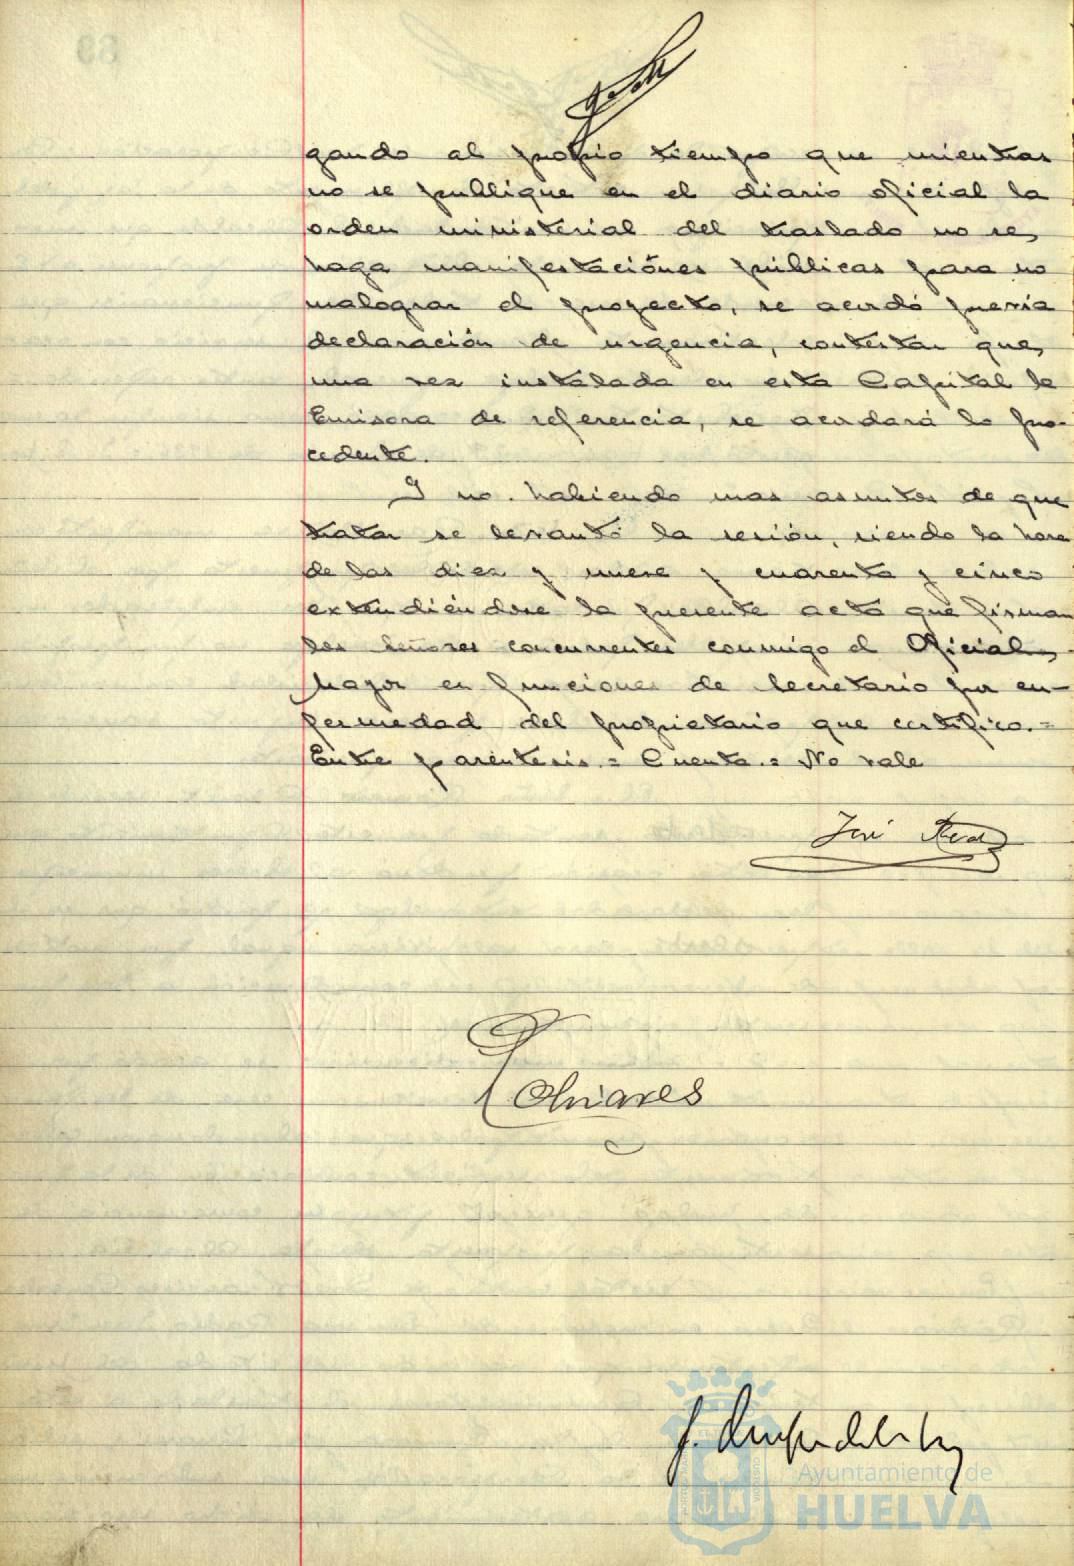 gando al propio tiempo que mientras
no se publique en el diario oficial la
orden ministerial del traslado no se
haga manifestaciónes públicas para no
malograr el proyecto, se acordó previa
declaración de urgencia, contestar que
una vez instalada en esta Capital la
Emisora de referencia, se acordará lo pro-
cedente.
Y no habiendo mas asuntos de que
tratar se levantó la sesión, siendo la hora
de las diez y nueve y cuarenta y cinco
extendiéndose la presente acta que firman
los señores concurrentes conmigo el Oficial
Mayor en funciones de Secretario por en-
fermedad del propietario que certifico.=
Entre parentesis.= Cuenta.= No vale
José
Olivares
Ayuntamiento de
HUELVA